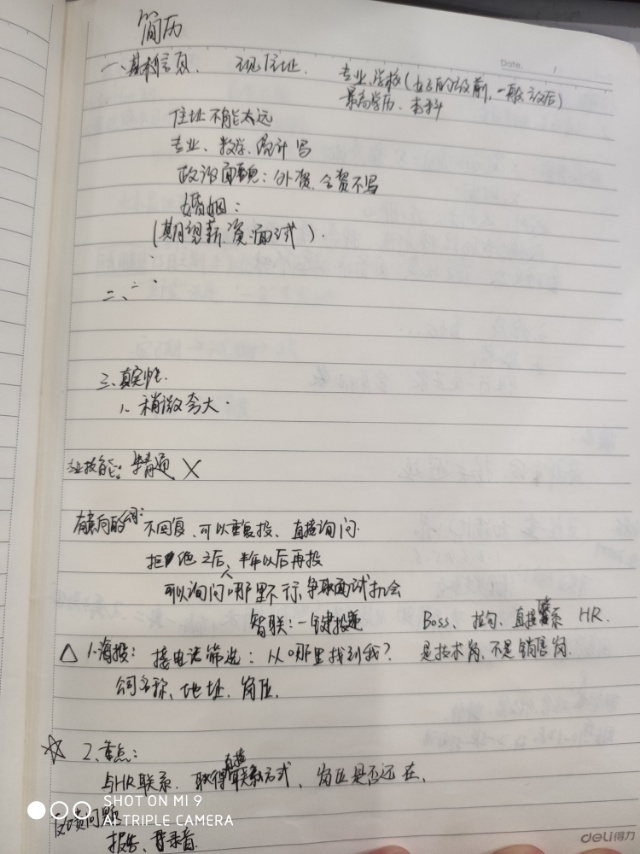 简历
Date 1
一、基本信息. 现住址 专业、学校(好的放前,一般放后)
最高学历、本科
住址不能太远
专业、数学、设计写
政治面貌:外资、合资不写
婚姻:
(期望薪资:面试).
二、
三、真实性.
1、稍微夸大.
专业技能:精通 ×
有意向的公司:不回复、可以重复投、直接询问
拒绝之后,半年以后再投
可以询问哪里不行、争取面试机会
智联:一键投递 Boss、拉勾、直接联系 HR.
△ 1.海投:接电话筛选:从哪里找到我? 是技术岗,不是销售岗.
公司名称、地址、岗位.
☆ 2.重点:
与HR联系. 取得直接联系方式、岗位是否还在、
反馈问题
报告、背录音
SHOT ON MI 9
AI TRIPLE CAMERA
deli得力